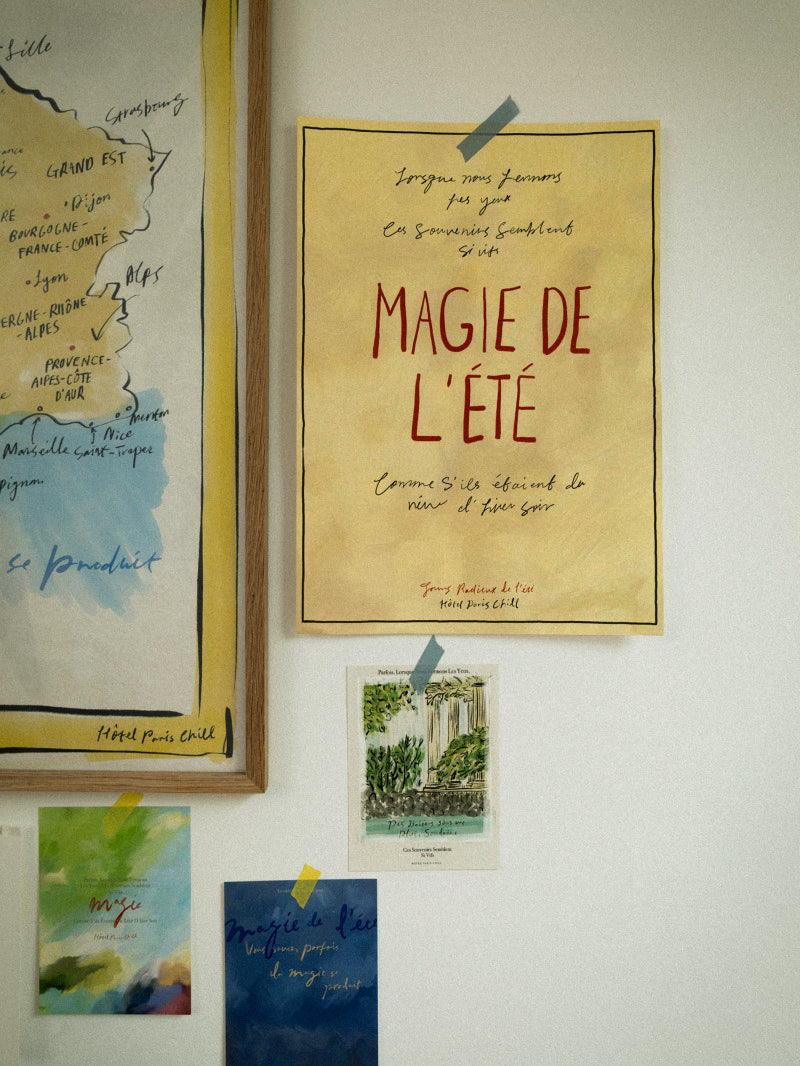 Lille
Strasbourg
GRAND EST
Dijon
BOURGOGNE-
FRANCE-COMTÉ
Lyon
ALPS
ERGNE-RHÔNE
-ALPES
PROVENCE-
AIPES-CÔTE
D'AUR
Menton
Nice
Marseille Saint-Tropez
pignan
se produit
Hôtel Paris Chill
Lorsque nous fermons
les yeux
Ces souvenirs semblent
si vifs
MAGIE DE
L'ÉTÉ
Comme s'ils étaient du
d'hier soir
Jours Radieux de l'été
Hôtel Paris Chill
Parfois, Lorsque Nous Fermons Les Yeux,
Ces Souvenirs Semblent
Si Vifs
HÔTEL PARIS CHILL
Magie
Hôtel Paris Chill
magie de l'été
Vous savez parfois
la magie se
produit